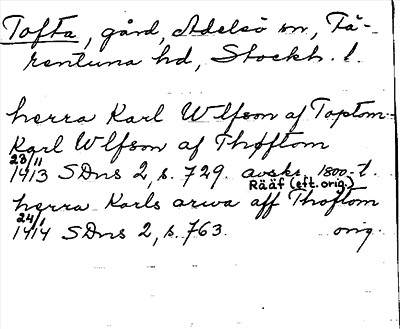 Tofta, gård, Adelsö sn, Fä-
rentuna hd, Stockh. l.
herra Karl Wlfson af Toptom
Karl Wlfson af Thøftom
23/11
1413 SDns 2, s. 729. avskr. 1800-t.
Rääf (eft. orig.)
herra Karls arwa aff Thoftom
24/1
1414 SDns 2, s. 763. orig.